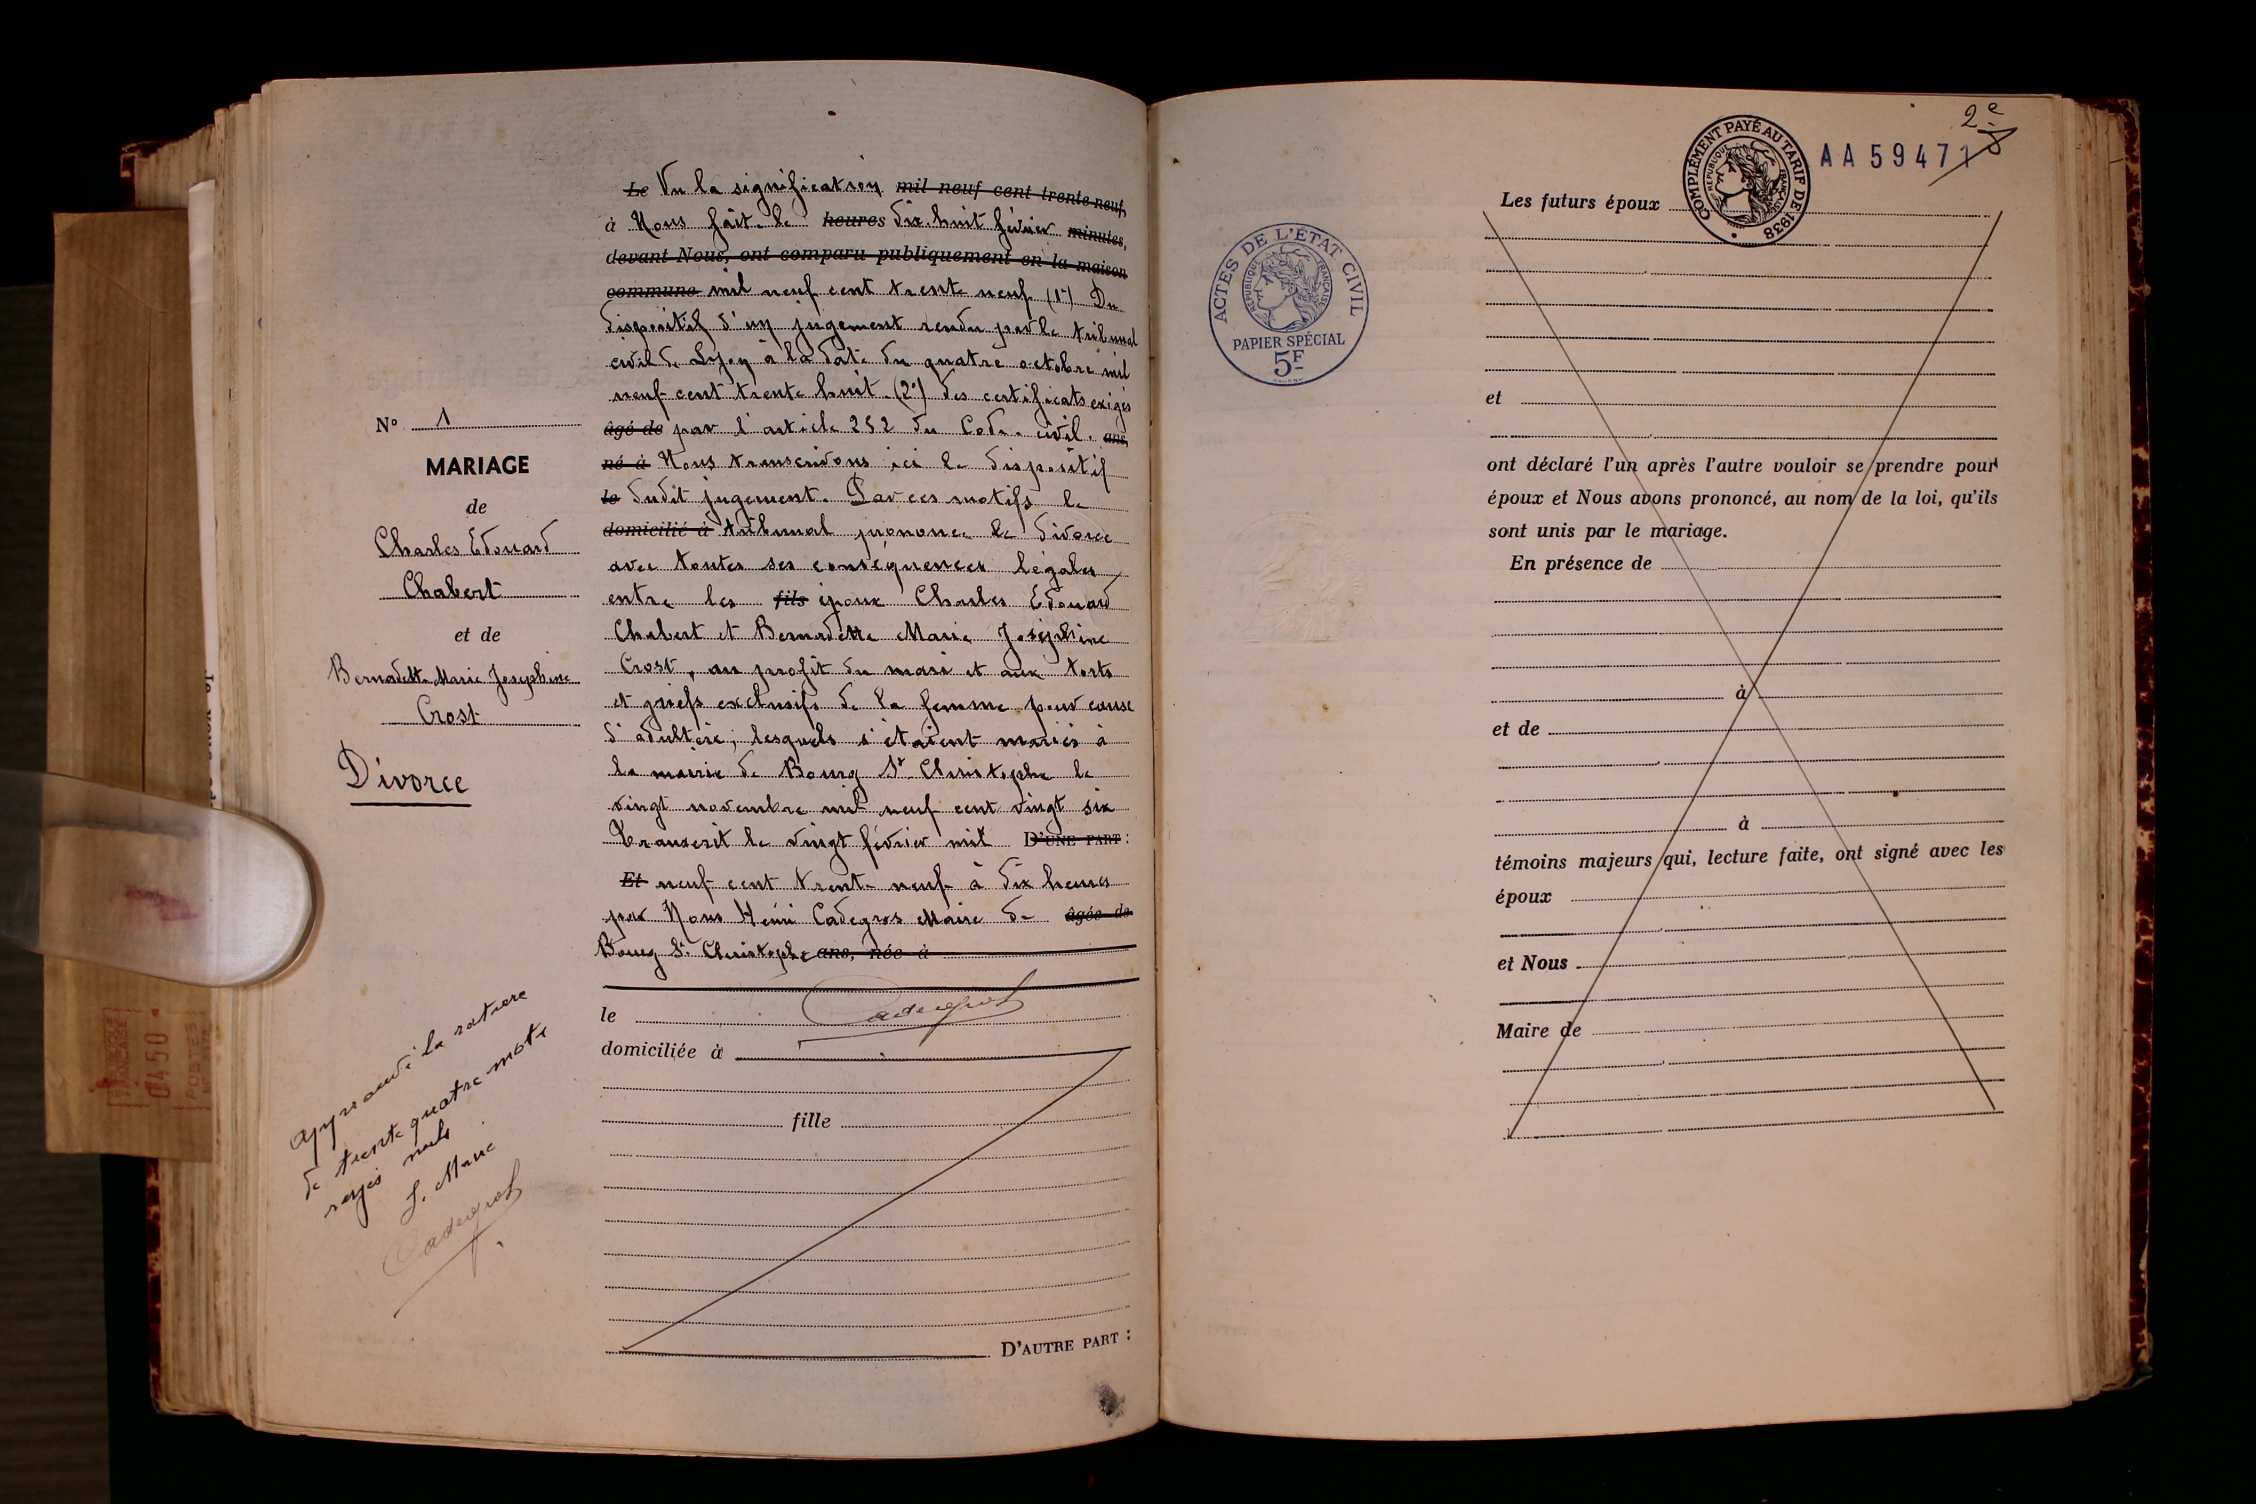 N° 1
MARIAGE
de
Charles Edouard
Chabert
et de
Bernadette Marie Josephine
Crost
Divorce
Approuvé la rature
de trente quatre mots
rayés nuls
Cadegros
Le Vu la signification mil neuf cent trente-neuf,
à Nous fait le heures dix huit février minutes,
devant Nous, ont comparu publiquement en la maison
commune mil neuf cent trente neuf (1°) Du
dispositif d'un jugement rendu par le tribunal
civil de Lyon à la date du quatre octobre mil
neuf cent trente huit. (2°) des certificats exigés
âgé de par l'article 252 du Code civil. ans,
né à Nous transcrivons ici le dispositif
le dudit jugement. Par ces motifs le
domicilié à tribunal prononce le divorce
avec toutes ses conséquences légales
entre les fils époux Charles Edouard
Chabert et Bernadette Marie Joséphine
Crost, au profit du mari et aux torts
et griefs exclusifs de la femme pour cause
d'adultère, lesquels s'étaient mariés à
la mairie de Bourg St Christophe le
vingt novembre mil neuf cent vingt six
Transcrit le vingt février mil D'UNE PART :
Et neuf cent trente neuf à dix heures
par Nous Henri Cadegros Maire de âgée de
Bourg St Christophe ans, née à
le Cadegros
domiciliée à
fille
D'AUTRE PART :
ACTES DE L'ÉTAT CIVIL
RÉPUBLIQUE FRANÇAISE
PAPIER SPÉCIAL
5F
COMPLÉMENT PAYÉ AU TARIF DE 1938
RÉPUBLIQUE FRANÇAISE
AA59471
2e
Les futurs époux
et
ont déclaré l'un après l'autre vouloir se prendre pour
époux et Nous avons prononcé, au nom de la loi, qu'ils
sont unis par le mariage.
En présence de
à
et de
à
témoins majeurs qui, lecture faite, ont signé avec les
époux
et Nous
Maire de
0450
POSTES